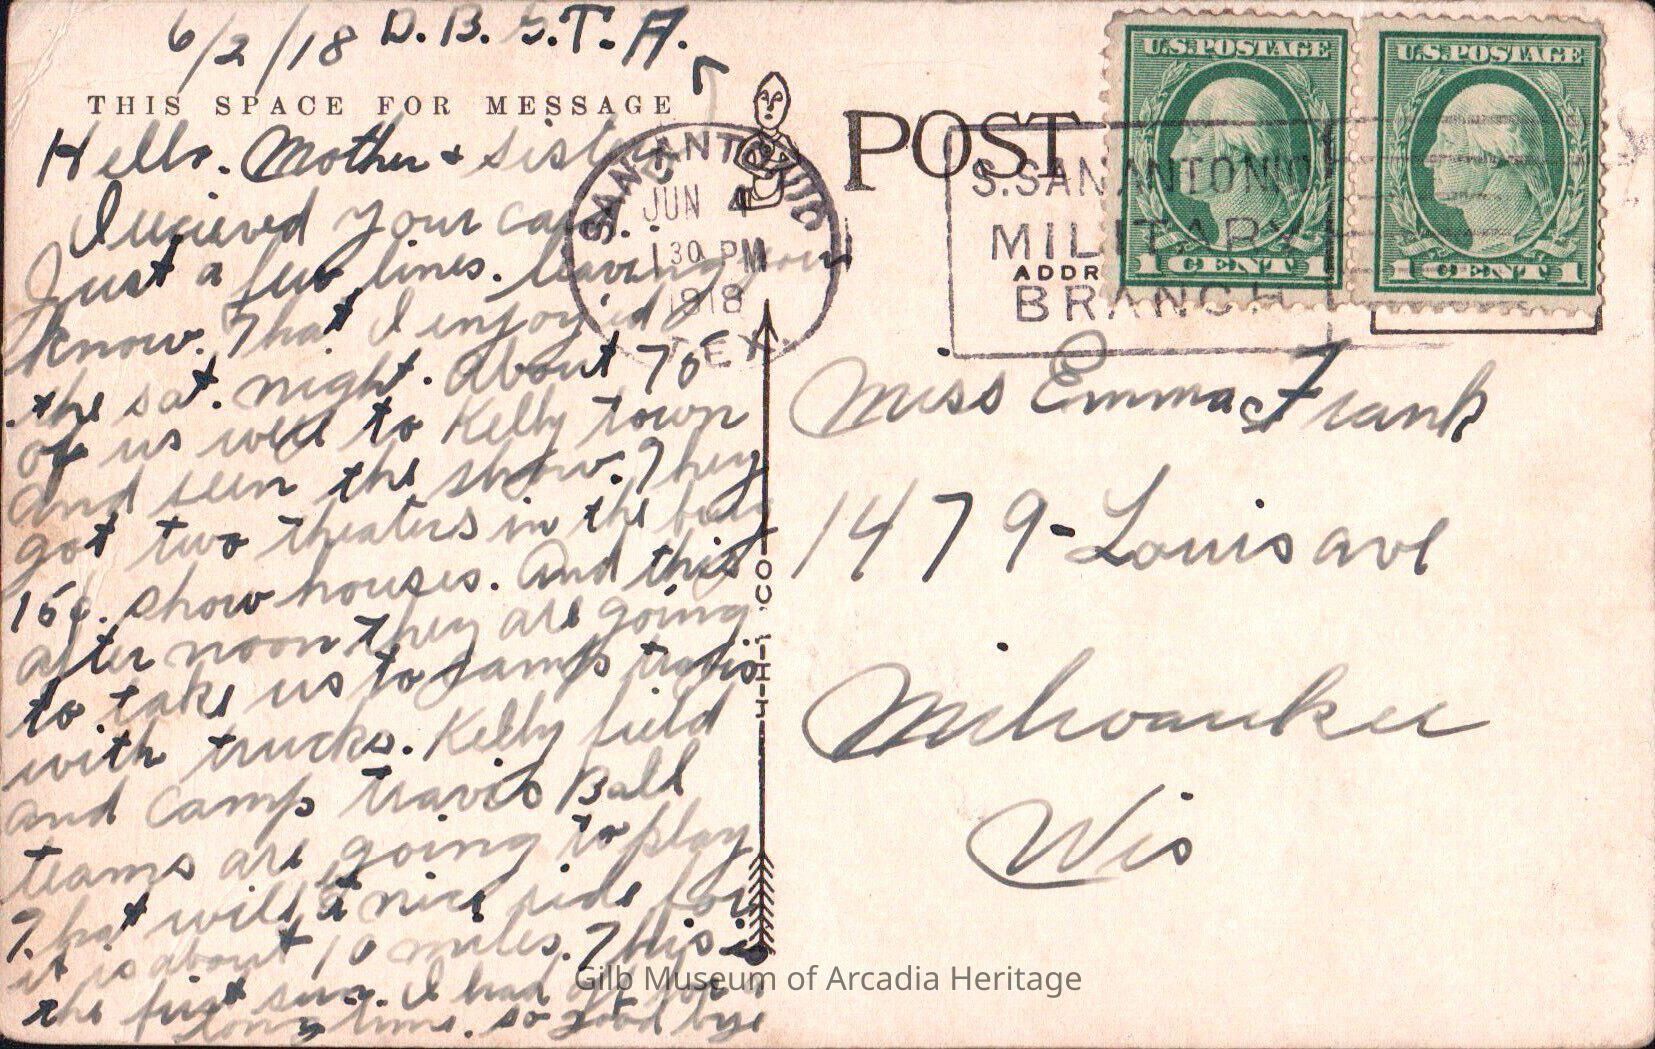 6/2/18 D. B. S. T. A.
THIS SPACE FOR MESSAGE
Hello. Mother & Sister
I recieved your card.
Just a few lines. leaving you
know. That I enjoyed
the sat. night. About 75
of us went to Kelly town
and seen the show. They
got two theaters in the
15¢. show houses. And this
after noon they are going
to take us to Camp travis
with trucks. Kelly field
and Camp travis Ball
teams are going to play
That will a nice ride for
it is about 10 miles. This is
the first sun. I had off for a
long time. so good bye
SAN ANTONIO
JUN 4
130 PM
1918
TEX.
POST
ADDR
S. SAN ANTONIO
MILITARY
BRANCH
U.S. POSTAGE
1 CENT 1
U.S. POSTAGE
1 CENT 1
Miss Emma Frank
1479-Louis ave
Milwaukee
Wis
Gilb Museum of Arcadia Heritage